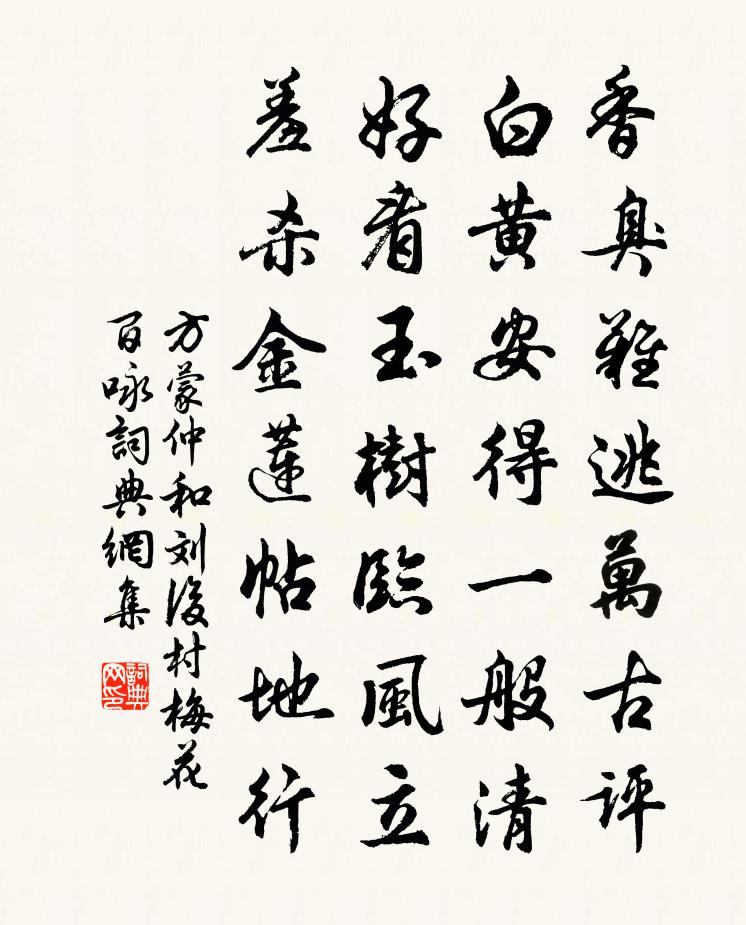 香臭難逃萬古評
白黃安得一般清
好看玉樹臨風立
羞杀金蓮帖地行
方蒙仲和刘後村梅花
百咏詞典網集
詞典
网印